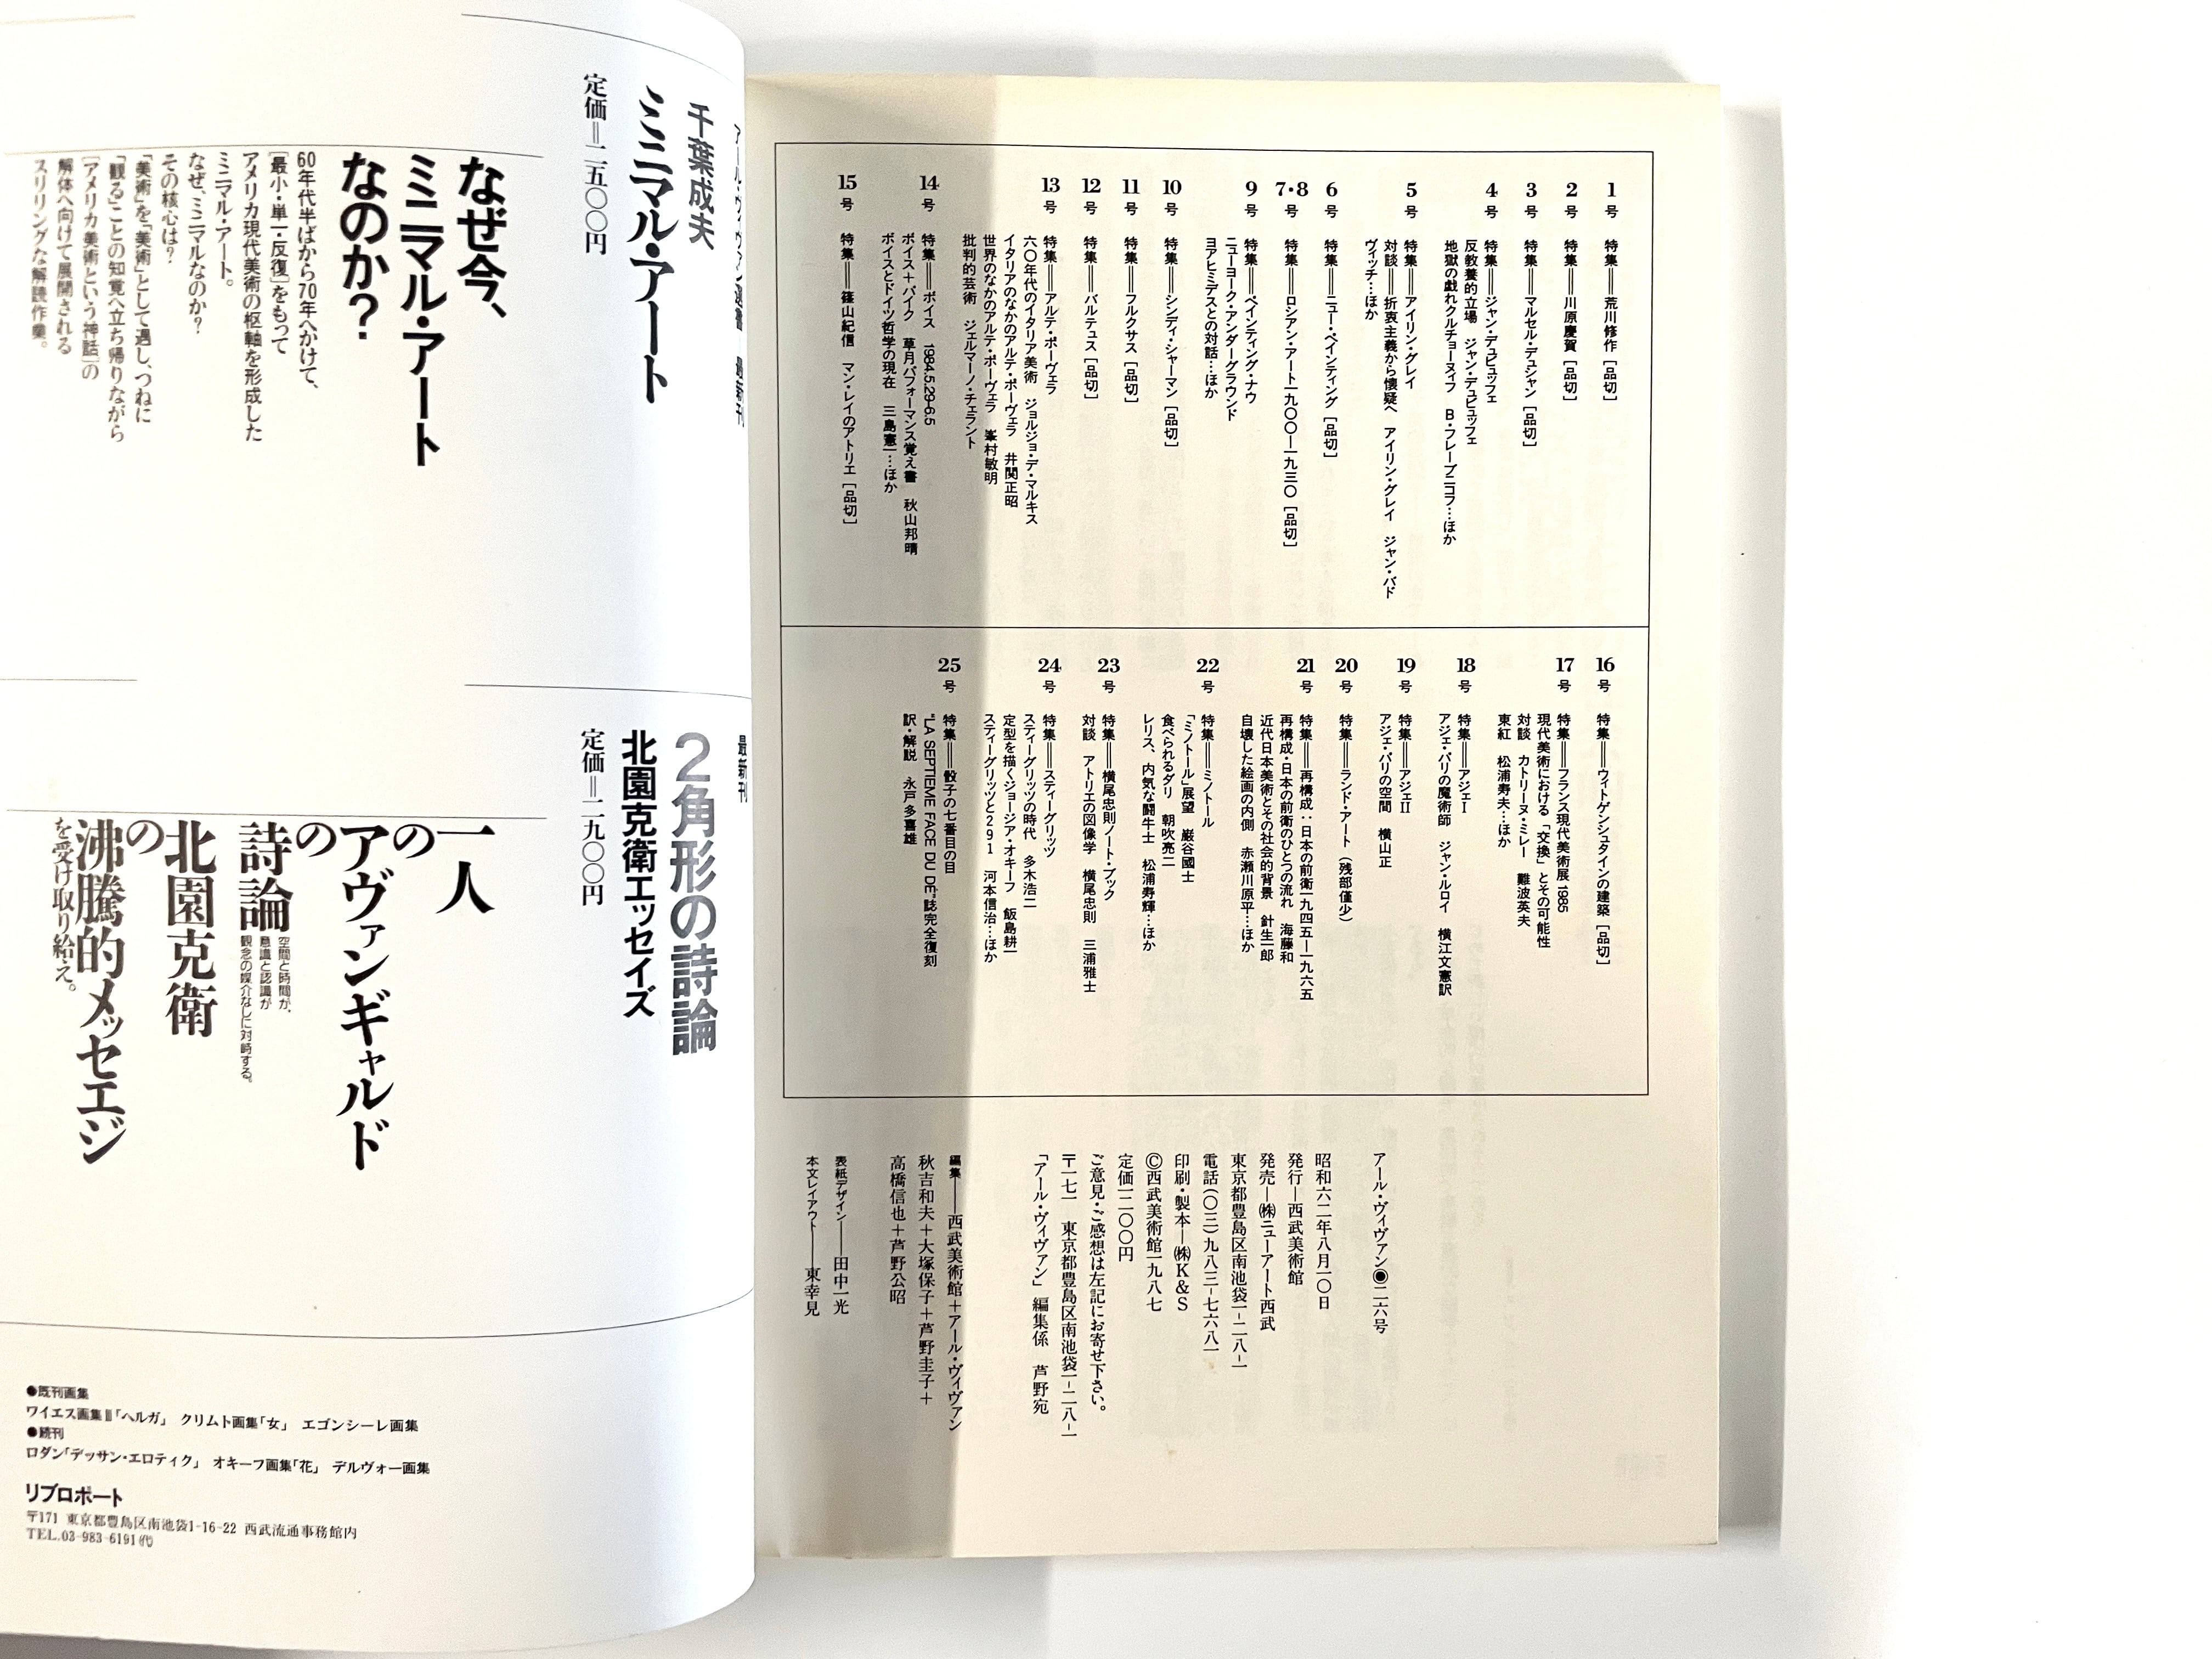 1号 特集＝荒川修作［品切］
2号 特集＝川原慶賀［品切］
3号 特集＝マルセル・デュシャン［品切］
4号 特集＝ジャン・デュビュッフェ
反教養的立場 ジャン・デュビュッフェ
地獄の戯れクルチョーヌイフ B・フレーブニコフ…ほか
5号 特集＝アイリン・グレイ
対談＝折衷主義から懐疑へ アイリン・グレイ ジャン・バド
ヴィッチ…ほか
6号 特集＝ニュー・ペインティング［品切］
7・8号 特集＝ロシアン・アート一九〇〇―一九三〇［品切］
9号 特集＝ペインティング・ナウ
ニューヨーク・アンダーグラウンド
ヨアヒミデスとの対話…ほか
10号 特集＝シンディ・シャーマン［品切］
11号 特集＝フルクサス［品切］
12号 特集＝バルテュス［品切］
13号 特集＝アルテ・ポーヴェラ
六〇年代のイタリア美術 ジョルジョ・デ・マルキス
イタリアのなかのアルテ・ポーヴェラ 井関正昭
世界のなかのアルテ・ポーヴェラ 峯村敏明
批判的芸術 ジェルマーノ・チェラント
14号 特集＝ボイス 1984.5.29-6.5
ボイス＋パイク 草月パフォーマンス覚え書 秋山邦晴
ボイスとドイツ哲学の現在 三島憲一…ほか
15号 特集＝篠山紀信 マン・レイのアトリエ［品切］
16号 特集＝ウィトゲンシュタインの建築［品切］
17号 特集＝フランス現代美術展1985
現代美術における「交換」とその可能性
対談 カトリーヌ・ミレー 難波英夫
東紅 松浦寿夫…ほか
18号 特集＝アジェI
アジェ・パリの魔術師 ジャン・ルロイ 横江文憲訳
19号 特集＝アジェII
アジェ・パリの空間 横山正
20号 特集＝ランド・アート（残部僅少）
21号 特集＝再構成：日本の前衛一九四五―一九六五
再構成・日本の前衛のひとつの流れ 海藤和
近代日本美術とその社会的背景 針生一郎
自壊した絵画の内側 赤瀬川原平…ほか
22号 特集＝ミノトール
「ミノトール」展望 巌谷國士
食べられるダリ 朝吹亮二
レリス、内気な闘牛士 松浦寿輝…ほか
23号 特集＝横尾忠則ノート・ブック
対談 アトリエの図像学 横尾忠則 三浦雅士
24号 特集＝スティーグリッツ
スティーグリッツの時代 多木浩二
定型を描くジョージア・オキーフ 飯島耕一
スティーグリッツと291 河本信治…ほか
25号 特集＝骰子の七番目の目
"LA SEPTIEME FACE DU DÉ"誌完全復刻
訳・解説 永戸多喜雄
アール・ヴィヴァン◉二六号
昭和六二年八月一〇日
発行―西武美術館
発売―㈱ニューアート西武
東京都豊島区南池袋一-二八-一
電話（〇三）九八三-七六八一
印刷・製本―㈱K&S
©西武美術館一九八七
定価一二〇〇円
ご意見・ご感想は左記にお寄せ下さい。
〒一七一 東京都豊島区南池袋一-二八-一
「アール・ヴィヴァン」編集係 芦野宛
編集――西武美術館＋アール・ヴィヴァン
秋吉和夫＋大塚保子＋芦野圭子＋
高橋信也＋芦野公昭
表紙デザイン――田中一光
本文レイアウト――東幸見
千葉成夫
ミニマル・アート
定価＝二五〇〇円
なぜ今、
ミニマル・アート
なのか？
60年代半ばから70年へかけて、
［最小・単一・反復］をもって
アメリカ現代美術の枢軸を形成した
ミニマル・アート。
なぜ、ミニマルなのか？
その核心は？
「美術」を「美術」として過し、つねに
「観る」ことの知覚へ立ち帰りながら
［アメリカ美術という神話］の
解体へ向けて展開される
スリリングな解読作業。
最新刊
2角形の詩論
北園克衛エッセイズ
定価＝二九〇〇円
一人
の
アヴァンギャルド
の
詩論
空間と時間が、
意識と認識が
観念の媒介なしに対峙する。
北園克衛
の
沸騰的メッセエジ
を受け取り給え。
●既刊画集
ワイエス画集Ⅲ「ヘルガ」 クリムト画集「女」 エゴンシーレ画集
●続刊
ロダン「デッサン・エロティク」 オキーフ画集「花」 デルヴォー画集
リブロポート
〒171 東京都豊島区南池袋1-16-22 西武流通事務館内
TEL.03-983-6191㈹